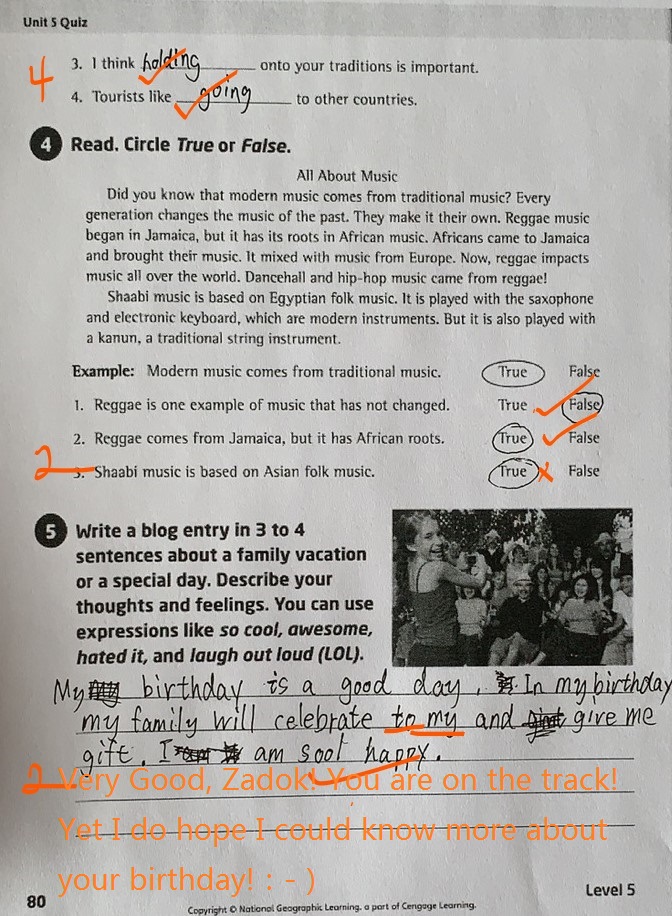 Unit 5 Quiz
3. I think holding onto your traditions is important.
4
4. Tourists like going to other countries.
4 Read. Circle True or False.
All About Music
Did you know that modern music comes from traditional music? Every
generation changes the music of the past. They make it their own. Reggae music
began in Jamaica, but it has its roots in African music. Africans came to Jamaica
and brought their music. It mixed with music from Europe. Now, reggae impacts
music all over the world. Dancehall and hip-hop music came from reggae!
Shaabi music is based on Egyptian folk music. It is played with the saxophone
and electronic keyboard, which are modern instruments. But it is also played with
a kanun, a traditional string instrument.
Example: Modern music comes from traditional music. True False
1. Reggae is one example of music that has not changed. True False
2. Reggae comes from Jamaica, but it has African roots. True False
2
3. Shaabi music is based on Asian folk music. True False
5 Write a blog entry in 3 to 4
sentences about a family vacation
or a special day. Describe your
thoughts and feelings. You can use
expressions like so cool, awesome,
hated it, and laugh out loud (LOL).
My birthday is a good day, In my birthday
my family will celebrate to my and give me
gift. I am soot happy.
2 Very Good, Zadok! You are on the track!
Yet I do hope I could know more about
your birthday! : - )
80
Level 5
Copyright © National Geographic Learning, a part of Cengage Learning.